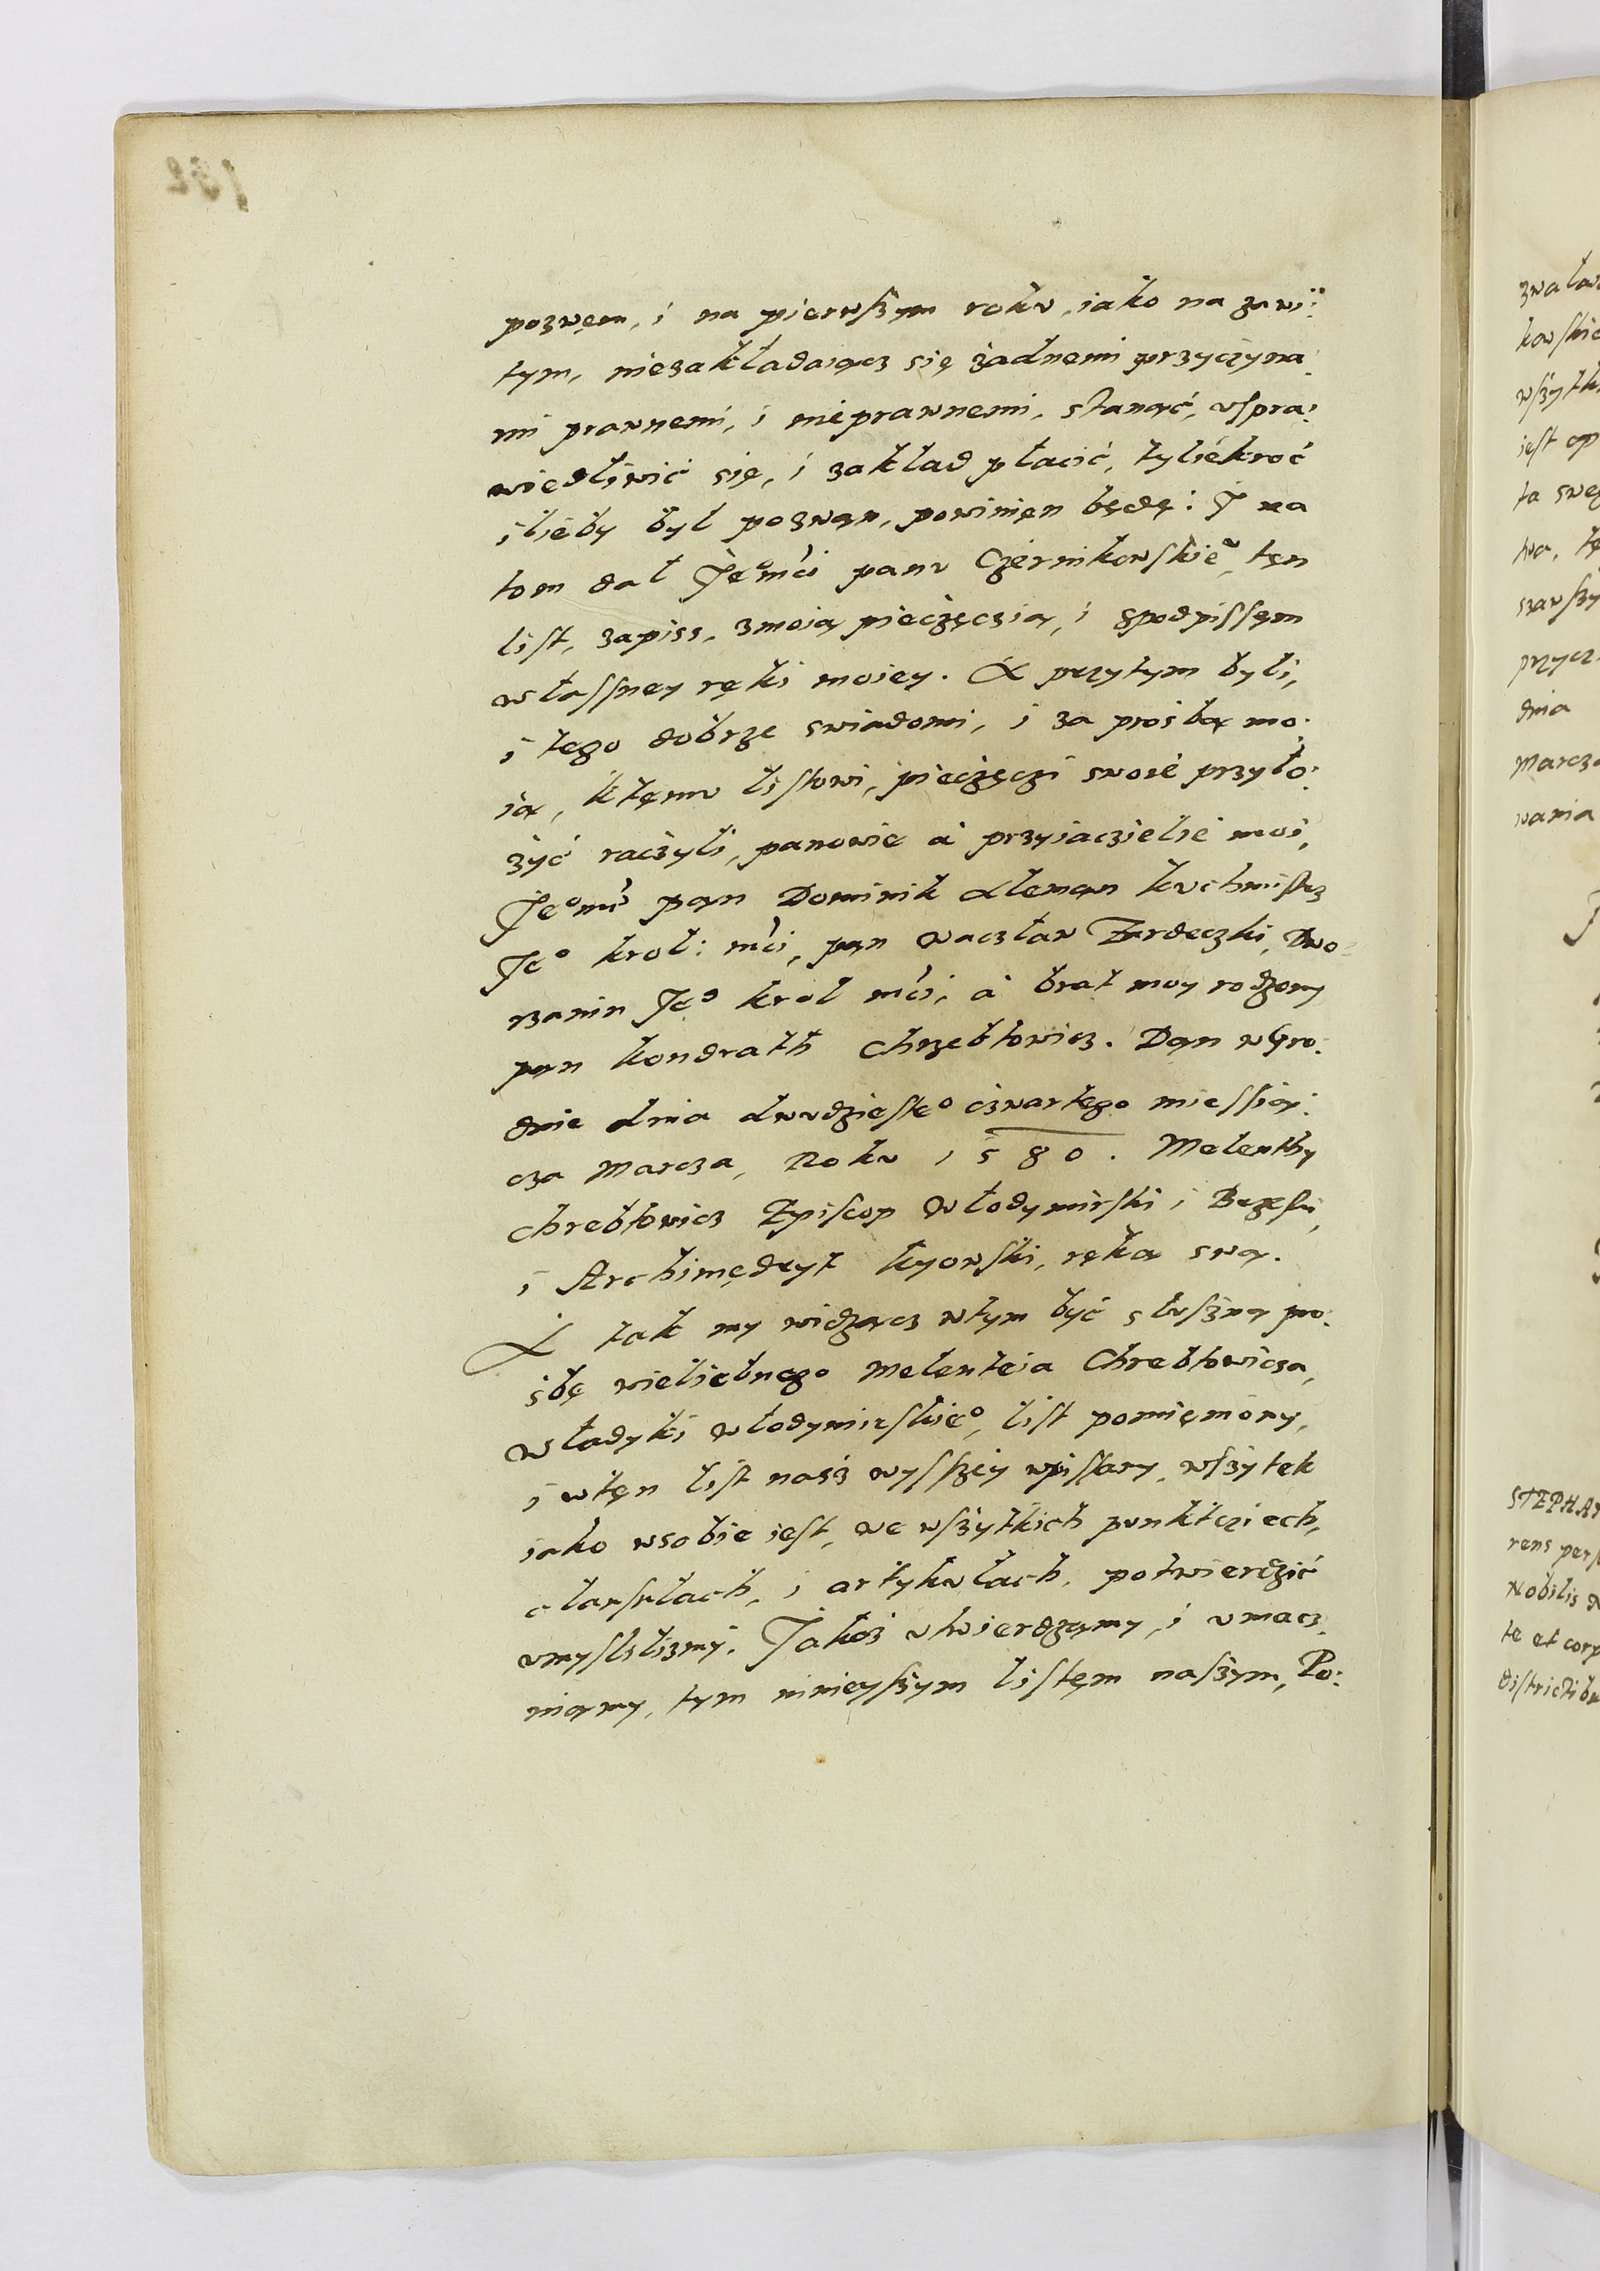 pozwem, i na pierwszym roku, iako na zawi:
tym, niezakładaiącz się żadnemi przyczyna:
mi prawnemi, i nieprawnemi, stanąć, vspra:
wiedliwić się, i zakład płacić, tyliekroć
ilieby był pozwan, powinięn będę: I na
tom dał Ieomci panu Czernikowskieo, tęn
list, zapiss, zmoią pieczęczią, i zpodpissęm
własney ręki moiey. A przytym byli,
i tego dobrze swiadomi, i za prosbą mo:
ią, ktęmu listowi, pieczęczi swoie przyło:
żyć raczyli, panowie à przyiaczielie moi,
Ieomć pan Dominik Aleman kuchmistrz
Ieo krol: mci, pan waczław Zardeczki, Dwo:
rzanin Ieo krol mci, à brat moy rodzony
pan kondrath Chrzebtowicz. Dan wGro:
dnie dnia dwudziesteo czwartego miessią:
cza Marcza, Roku 1580. Melenthy
Chrebtowicz Episcop Włodymirski i Brzeski,
i Archimędryt kyowski, ręką swą.
A tak my widząącz wtym być słuszną pro:
sbę wieliebnego Melenteia Chrebtowicza,
władyki włodymirskieo, list pomięniony,
i wtęn list nasz wysszey wpissany, wszytek
iako wsobie iest, we wszytkich punktciech,
clausułach, i artykułach, potwierdzić
vmyslilizmy. Jakoż vtwierdzamy, i vmacz:
niamy, tym ninieyszym listęm naszym, Po:
132
zwała
kowskie
wszytk
iest op
ta sweg
wa, tę
szawszy
przycz
dnia
Marcza
wania
STEPHAN
rens pers
Nobilis
te et corp
districtibu